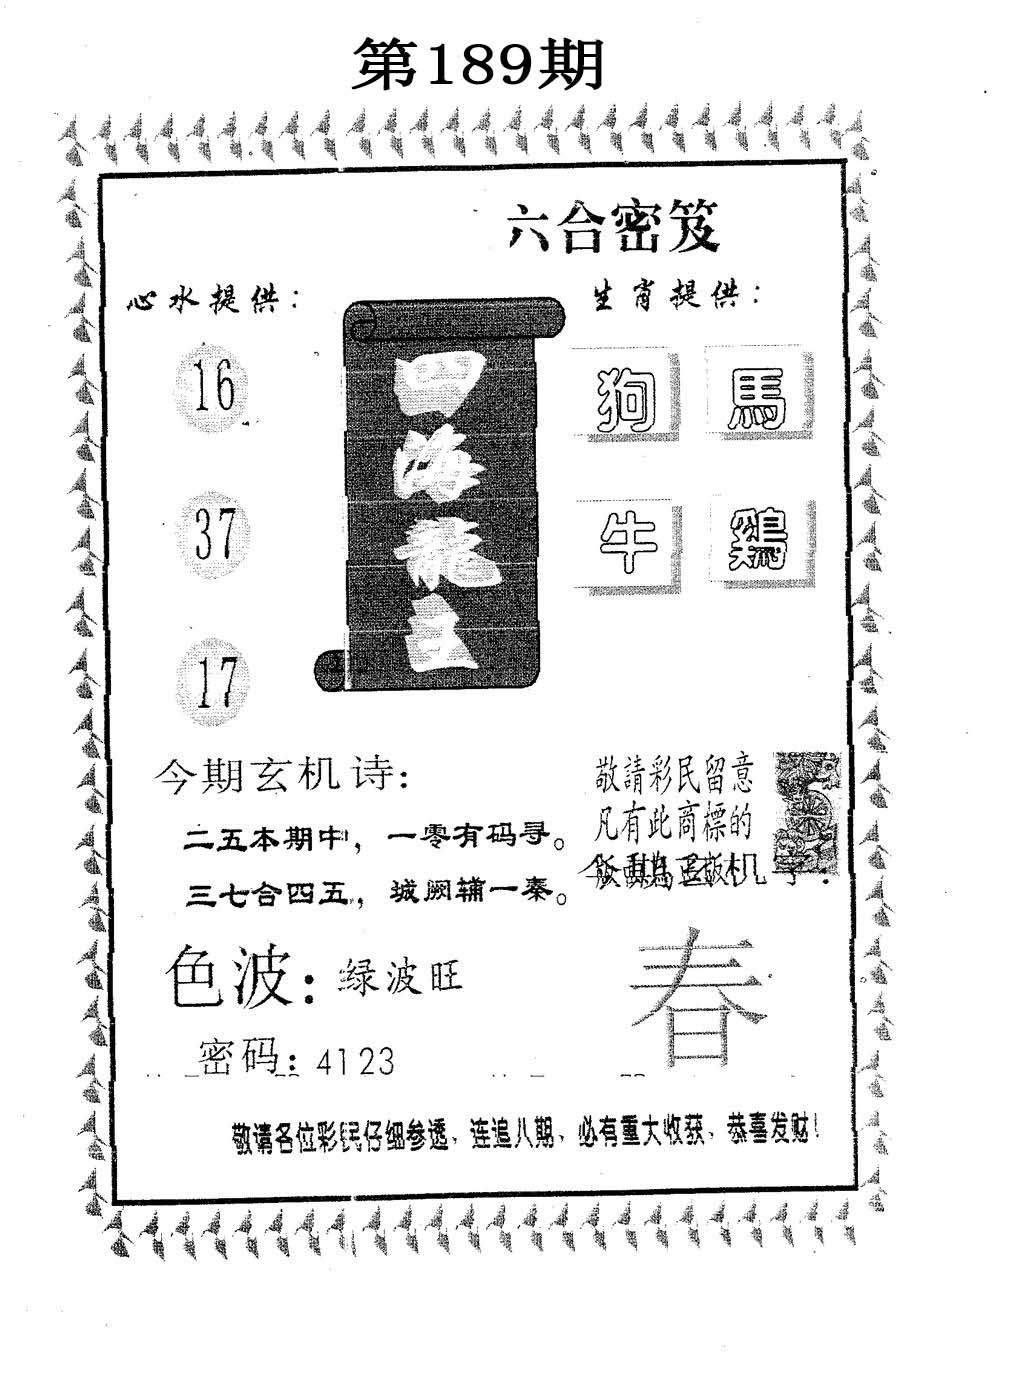 第189期
六合密笈
心水提供：
生肖提供：
16
37
17
四海龍王
狗
馬
牛
鷄
今期玄机诗：
二五本期中，一零有码寻。
三七合四五，城阙辅一秦。
敬請彩民留意
凡有此商標的
色波：绿波旺
密码：4123
春
敬请各位彩民仔细参透、连追八期、必有重大收获、恭喜发财！